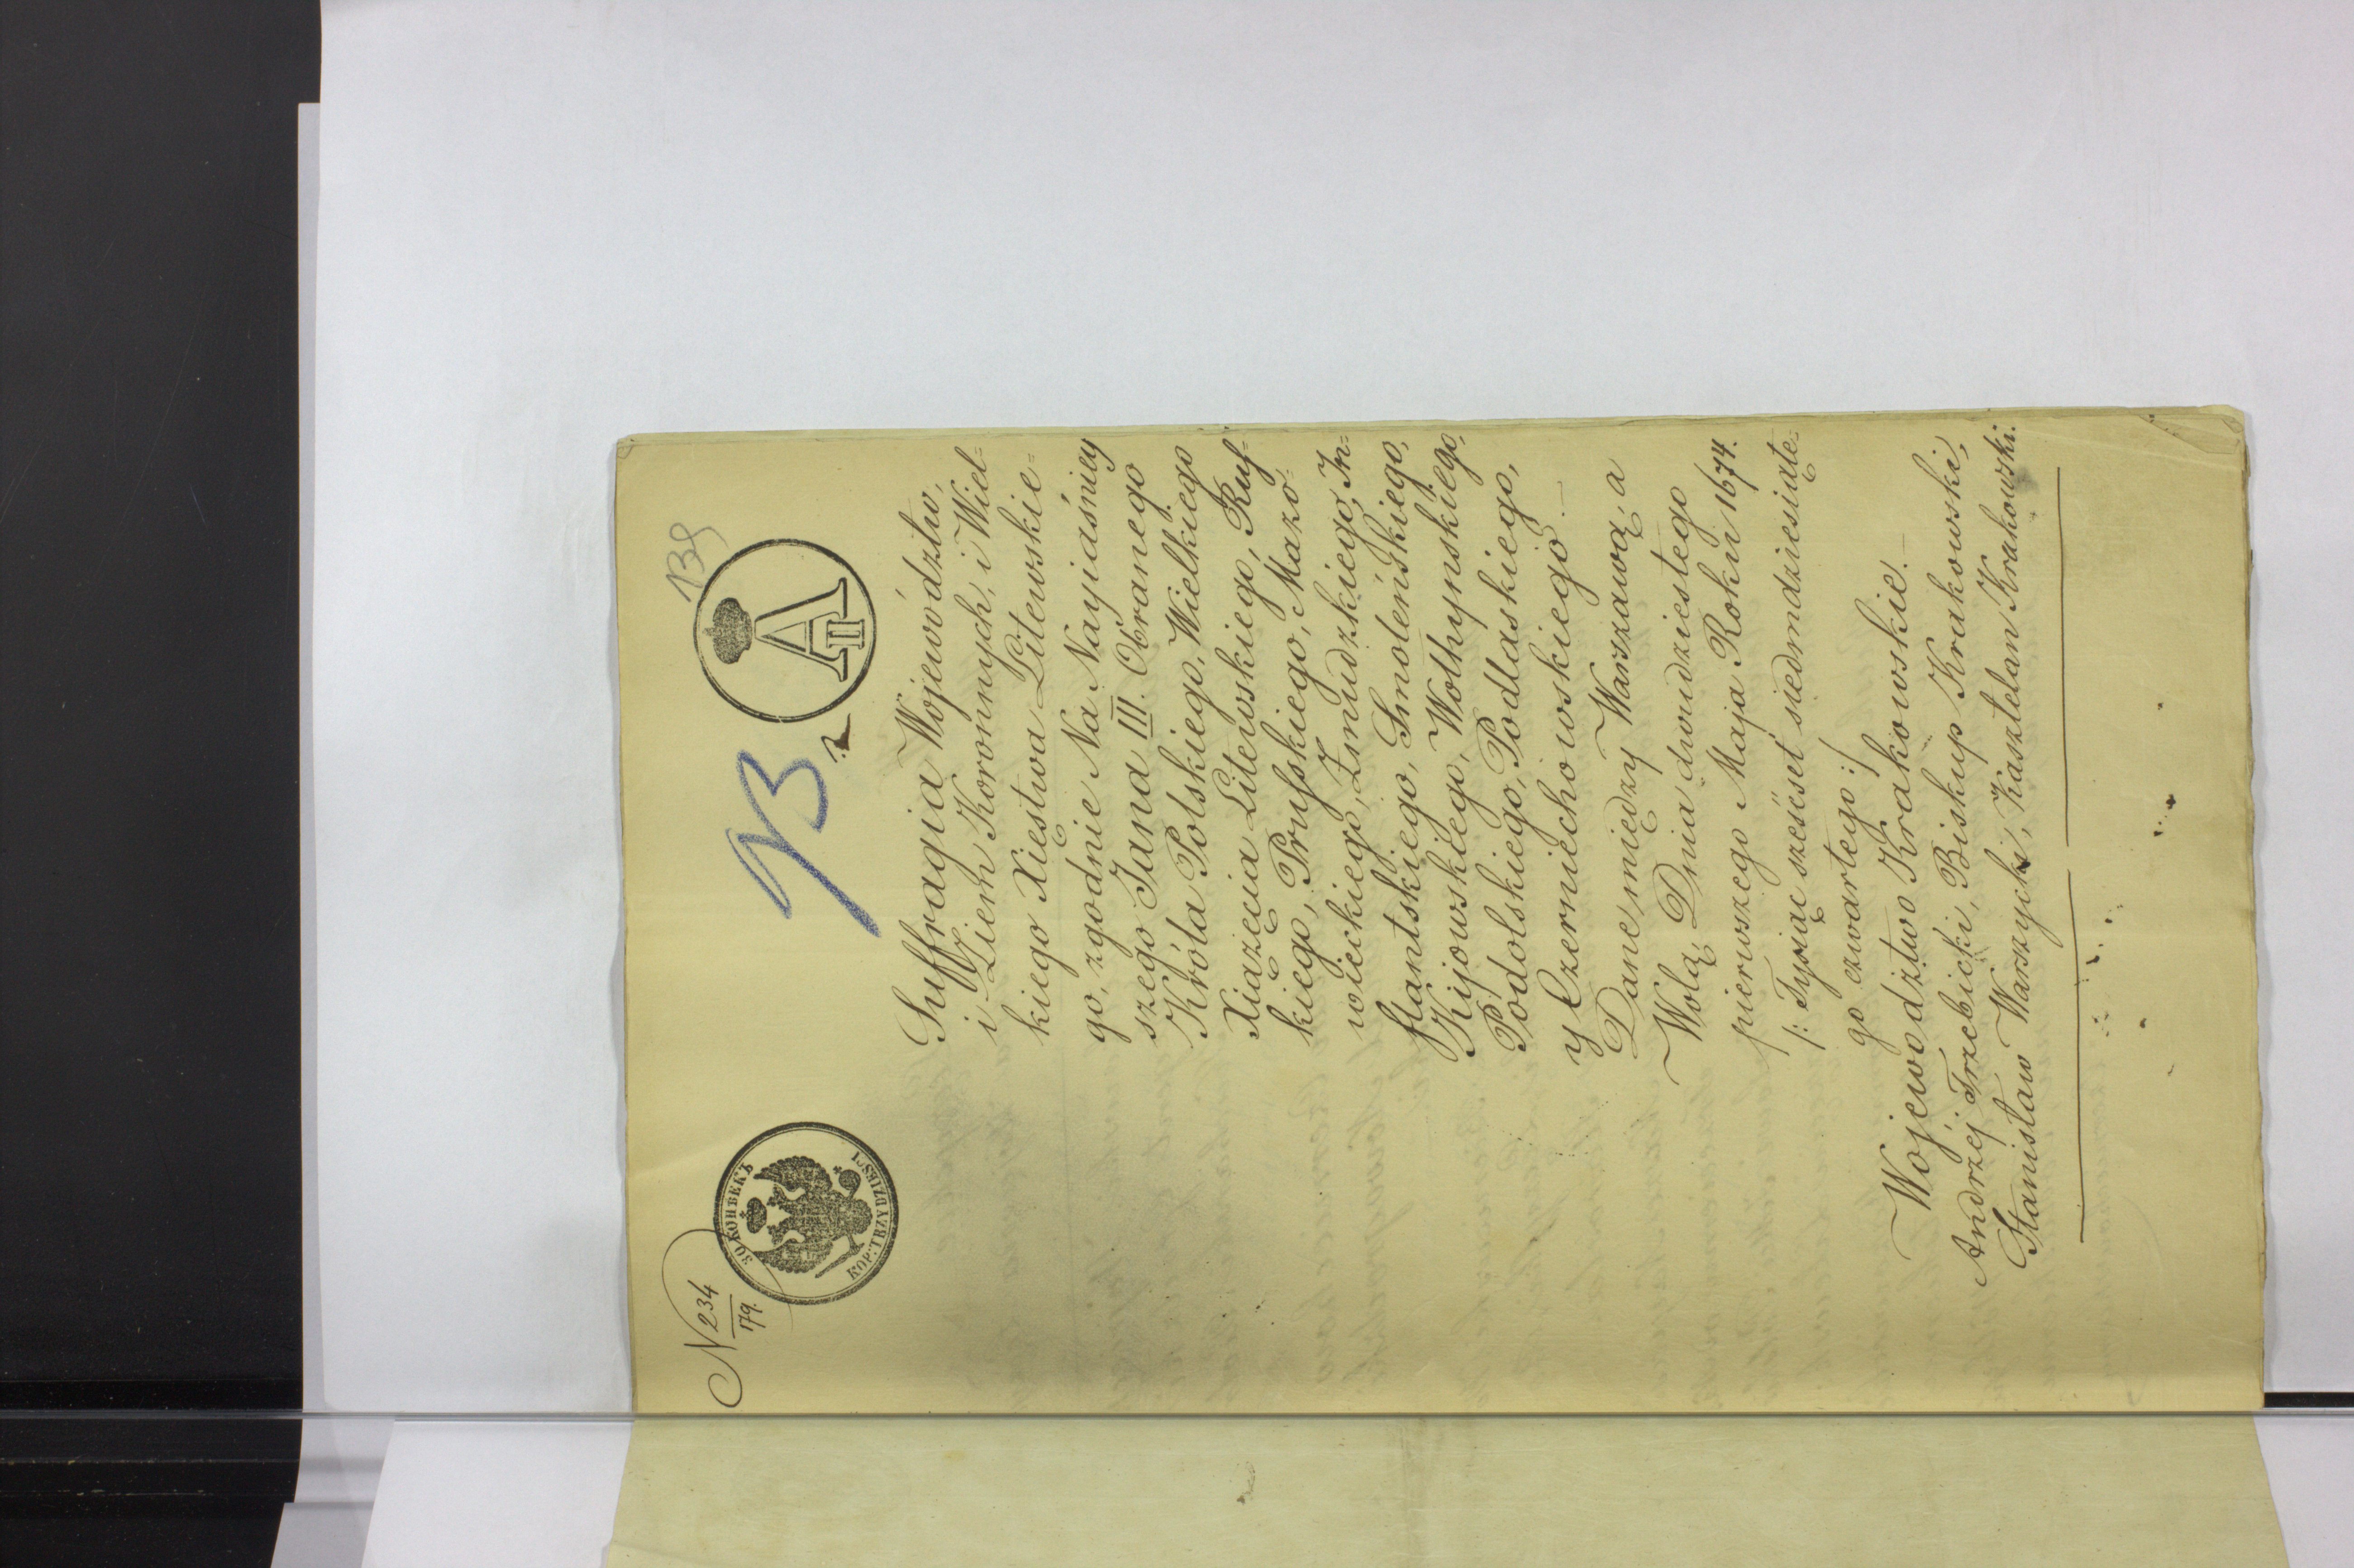 N 234
179.
30 КОПѢЕКЪ
KOP: TRZYDZIEŚCI
B
A II
Suffragia Województw,
i Ziem Koronnych, i Wiel=
kiego Xięstwa Litewskie=
go, zgodnie Na Nayiaśniey
szego Jana III. Obranego
Króla Polskiego, Wielkiego
Xiążęcia Litewskiego, Rus=
kiego, Pruskiego, Mazo=
wieckiego, Żmudzkiego, In=
flantskiego, Smoleńskiego,
Kijowskiego, Wołhynskiego,
Podolskiego, Podlaskiego,
y Czerniechowskiego.—
Dane, między Warszawą, a
Wolą, Dnia dwudziestego
pierwszego Maja Roku 1674.
/: Tysiąc sześćset siedmdziesiąte=
go czwartego :/
Wojewodztwo Krakowskie.—
Andrzej Trzebicki, Biskup Krakowski,
Stanisław Warszycki, Kasztelan Krakowski.